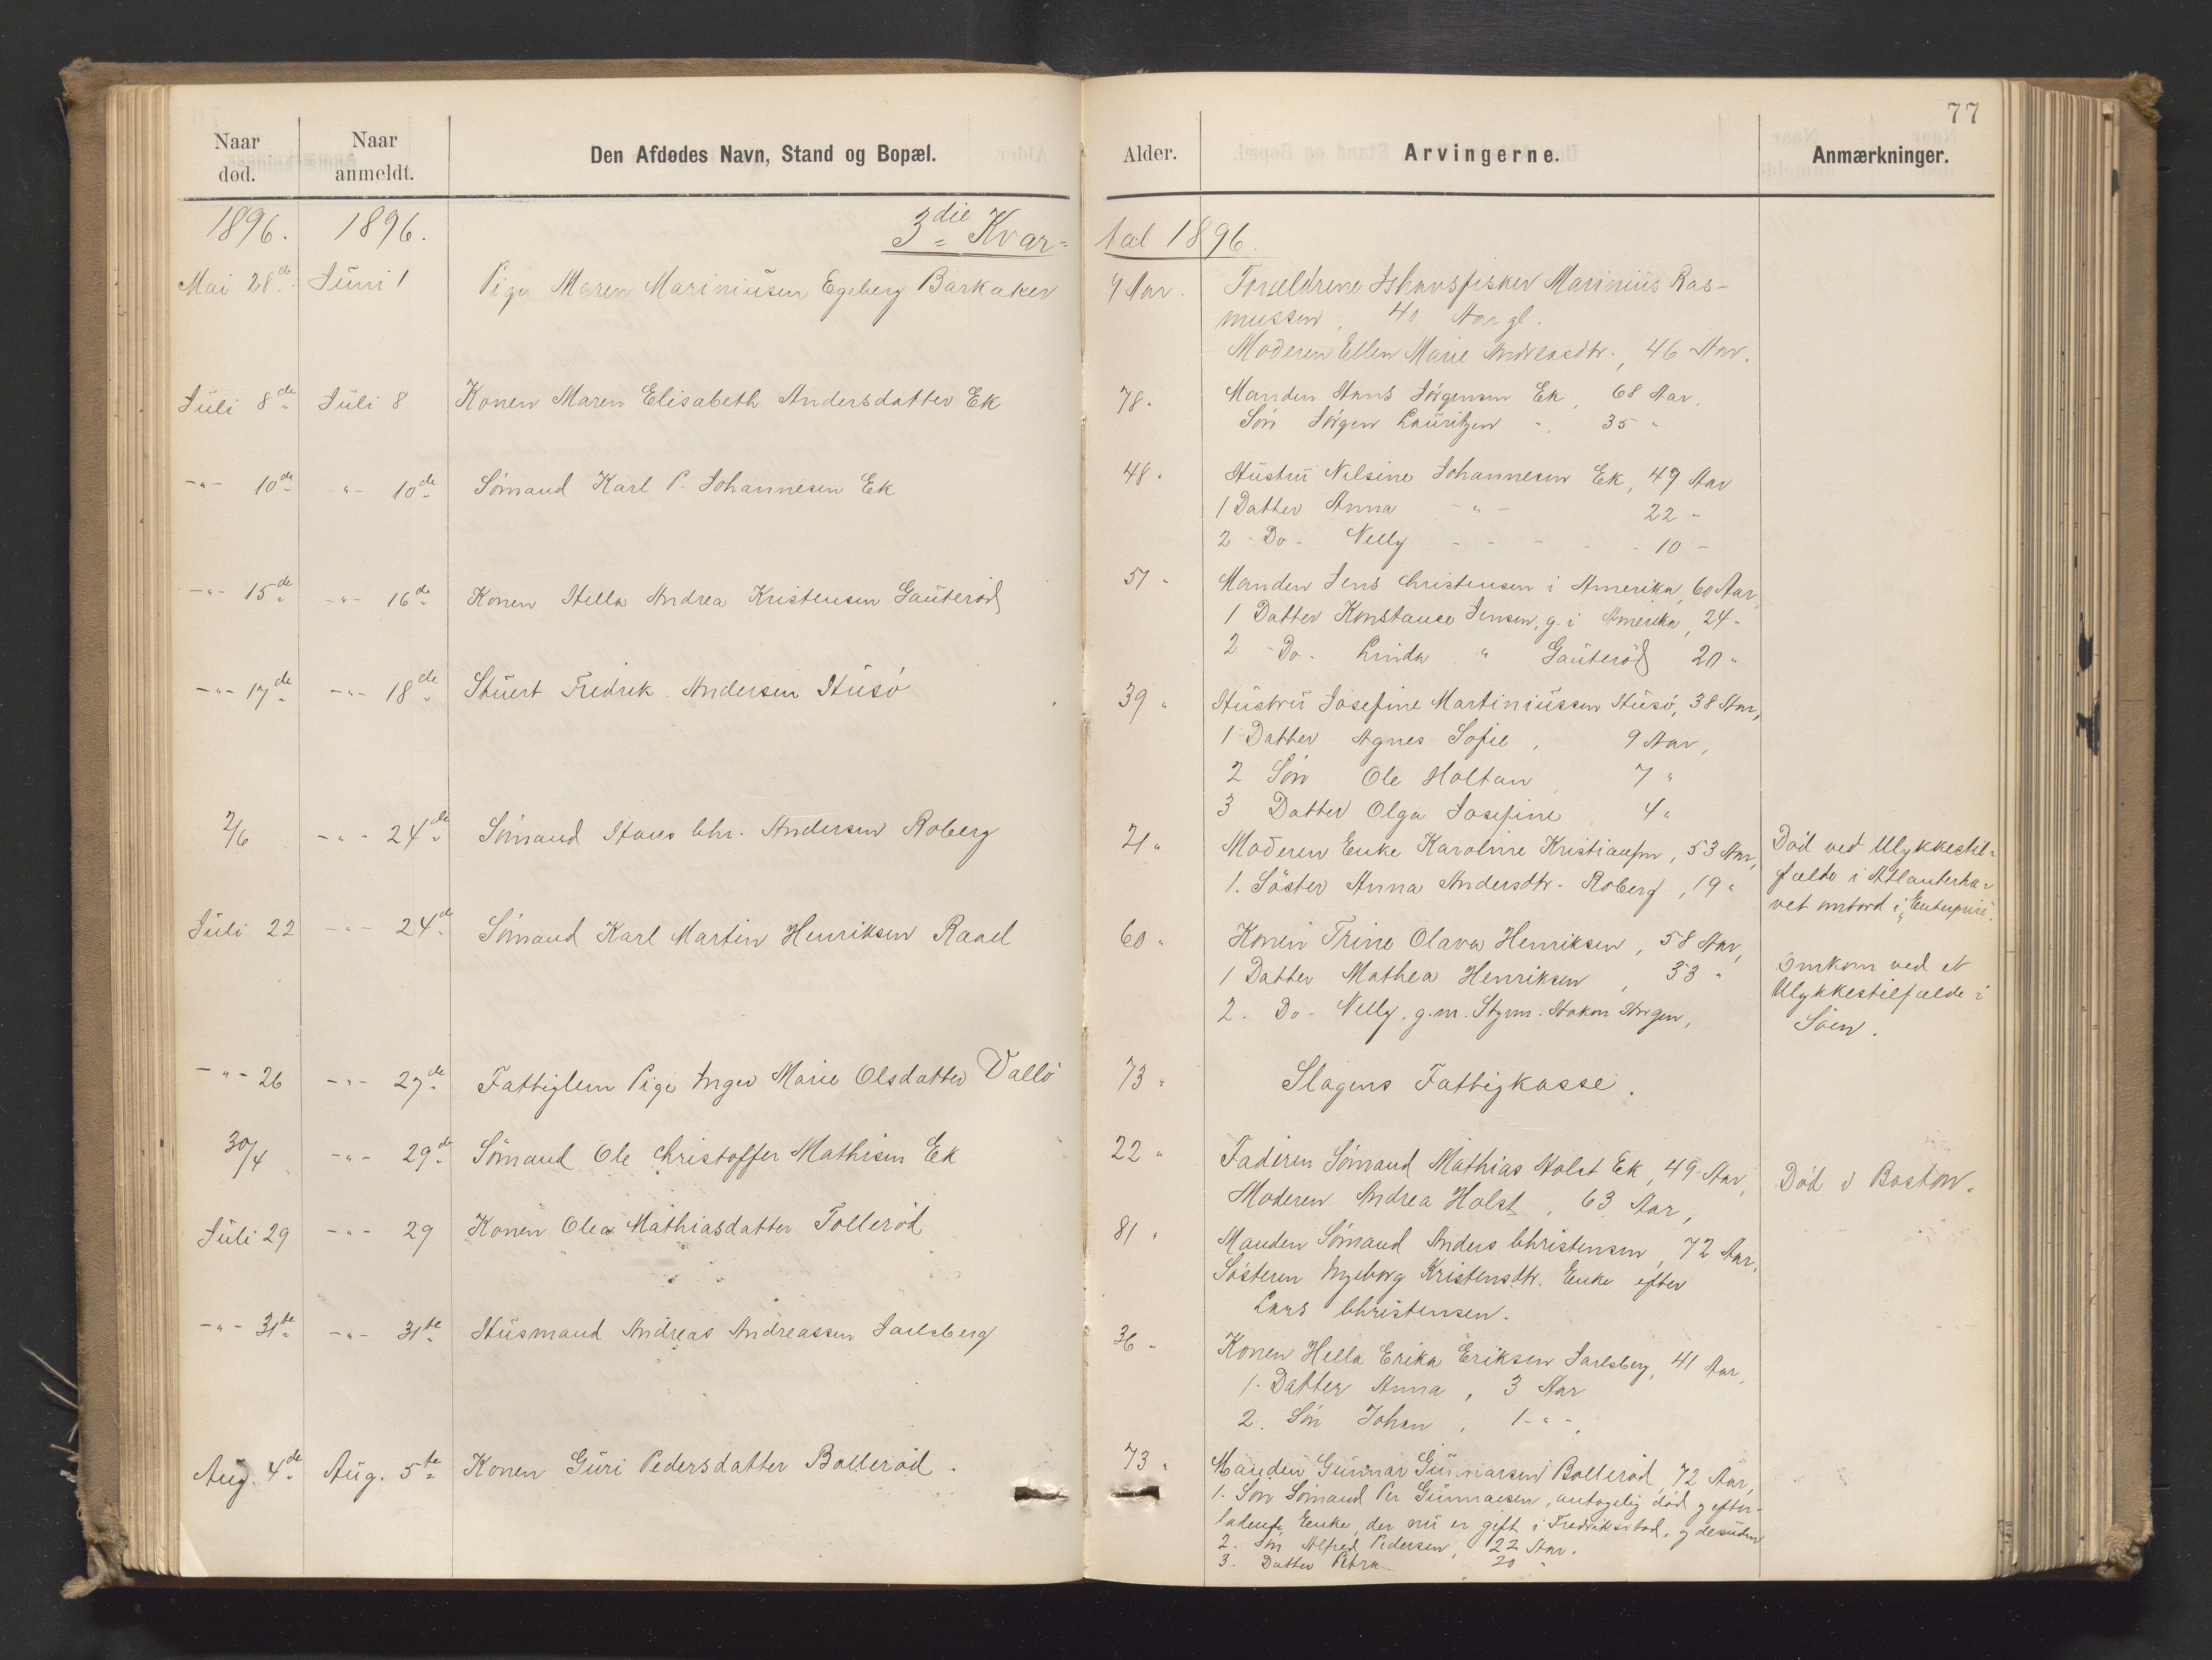 77
Naar død. Naar anmeldt. Den Afdødes Navn, Stand og Bopæl. Alder. Arvingerne. Anmærkninger.
1896. 1896. 3die Kvar- tal 1896.
Mai 28de Juni 1 Pige Maren Mariniusen Egeberg Barkaker 9 Aar. Forældrene Ishavsfisker Marinius Ras-
mussen, 40 Aar gl.
Moderen Ellen Marie Andreasdtr., 46 Aar.
Juli 8de Juli 8 Konen Maren Elisabeth Andersdatter Ek 78 " Manden Hans Jørgensen Ek, 68 Aar.
Søn Jørgen Lauritzen " 35 "
-"- 10de -"- 10de Sømand Karl P. Johannesen Ek 48 " Hustru Nilsine Johannesen Ek, 49 Aar
1 Datter Anna -"- 22 "
2 Do. Nelly - - - - 10 -
-"- 15de -"- 16de Konen Hella Andrea Kristensen Gauterød 51 " Manden Jens Christensen i Amerika, 60 Aar,
1 Datter Konstance Jensen, g. i Amerika, 24 "
2 Do. Linda " Gauterød 20 "
-"- 17de -"- 18de Stuert Fredrik Andersen Husø 39 " Hustru Josefine Martiniussen Husø, 38 Aar,
1 Datter Agnes Sofie, 9 Aar,
2 Søn Ole Holtan, 7 "
3 Datter Olga Josefine, 4 "
2/6 -"- 24de Sømand Hans Chr. Andersen Roberg 21 " Moderen Enke Karoline Kristiansen, 53 Aar,
1. Søster Anna Andersdtr. Roberg, 19 "
Død ved Ulykkestil-
fælde i Atlanterha-
vet ombord i "Enterprise".
Juli 22 -"- 24de Sømand Karl Martin Henriksen Raael 60 " Konen Trine Olava Henriksen, 58 Aar,
1 Datter Mathea Henriksen, 33 "
2. Do - Nelly, g.m. Styrm. Hakon
Omkom ved et
Ulykkestilfælde i
Søen.
-"- 26 -"- 27de Fattiglem Pige Inger Marie Olsdatter Vallø 73 " Slagens Fattigkasse.
30/4 -"- 29de Sømand Ole Christoffer Mathisen Ek 22 " Faderen Sømand Mathias Holst Ek, 49 Aar,
Moderen Andrea Holst, 63 Aar,
Død i Boston.
Juli 29 -"- 29 Konen Olea Mathiasdatter Tollerød 81 " Manden Sømand Anders Christensen, 72 Aar.
Søsteren Ingeborg Kristensdtr. Enke efter
Lars Christensen.
-"- 31te -"- 31te Husmand Andreas Andreassen Jarlsberg 36 " Konen Hella Erika Eriksen Jarlsberg, 41 Aar,
1. Datter Anna, 3 Aar
2. Søn Johan, 1 -"-
Aug. 4de Aug. 5te Konen Guri Pedersdatter Bollerød. 73 " Manden Gunnar Gunnarsen Bollerød, 72 Aar,
1. Søn Sømand Per Gunnarsen, antagelig død og efter-
ladende Enke, der nu er gift i Fredrikstad, og desuden
2. Søn Alfred Pedersen, 22 Aar.
3. Datter Petra 20 "